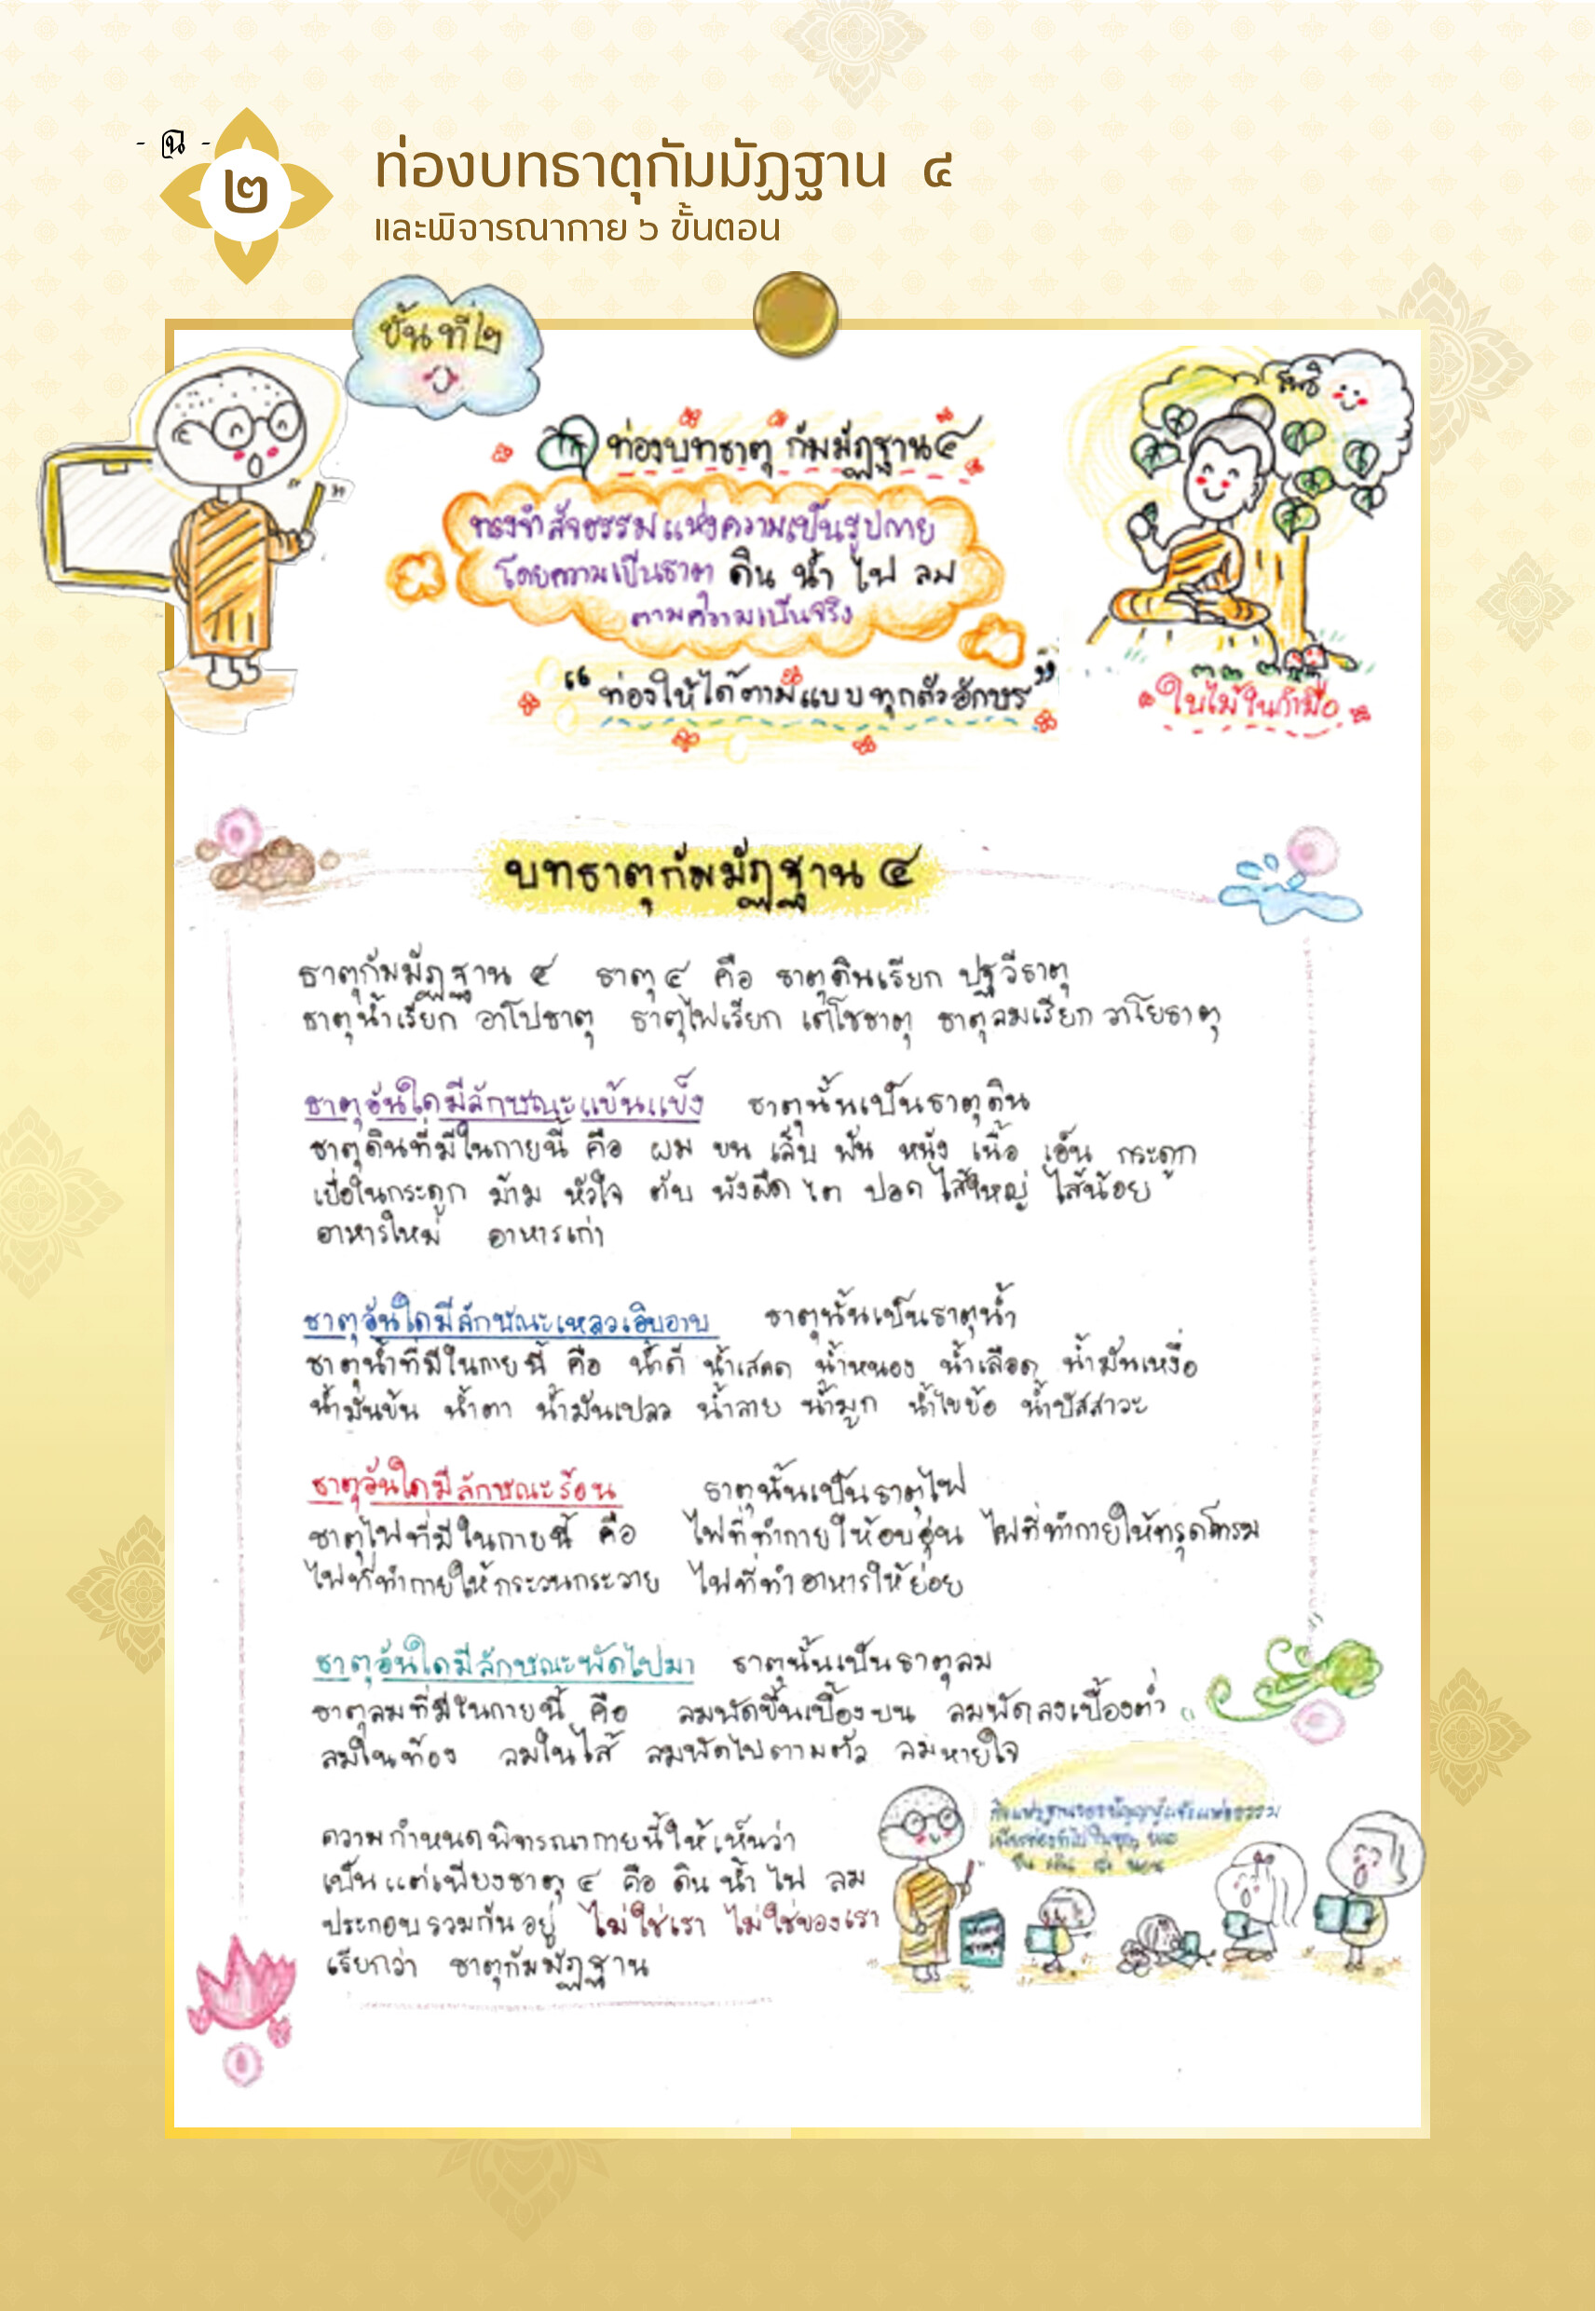 - ฉ -
๒
ท่องบทธาตุกัมมัฏฐาน ๔
และพิจารณากาย ๖ ขั้นตอน
ขั้นที่ ๒
ท่องบทธาตุ กัมมัฏฐาน ๔
ทรงจำสัจธรรมแห่งความเป็นรูปกาย
โดยความเป็นธาตุ ดิน น้ำ ไฟ ลม
ตามความเป็นจริง
"ท่องให้ได้ตามแบบทุกตัวอักษร"
โพธิ
ใบไม้ในกำมือ
บทธาตุกัมมัฏฐาน ๔
ธาตุกัมมัฏฐาน ๔ ธาตุ ๔ คือ ธาตุดินเรียก ปฐวีธาตุ
ธาตุน้ำเรียก อาโปธาตุ ธาตุไฟเรียก เตโชธาตุ ธาตุลมเรียก วาโยธาตุ
ธาตุอันใดมีลักษณะแข้นแข็ง ธาตุนั้นเป็นธาตุดิน
ธาตุดินที่มีในกายนี้ คือ ผม ขน เล็บ ฟัน หนัง เนื้อ เอ็น กระดูก
เยื่อในกระดูก ม้าม หัวใจ ตับ พังผืด ไต ปอด ไส้ใหญ่ ไส้น้อย
อาหารใหม่ อาหารเก่า
ธาตุอันใดมีลักษณะเหลวเอิบอาบ ธาตุนั้นเป็นธาตุน้ำ
ธาตุน้ำที่มีในกายนี้ คือ น้ำดี น้ำเสลด น้ำหนอง น้ำเลือด น้ำมันเหงื่อ
น้ำมันข้น น้ำตา น้ำมันเปลว น้ำลาย น้ำมูก น้ำไขข้อ น้ำปัสสาวะ
ธาตุอันใดมีลักษณะร้อน ธาตุนั้นเป็นธาตุไฟ
ธาตุไฟที่มีในกายนี้ คือ ไฟที่ทำกายให้อบอุ่น ไฟที่ทำกายให้ทรุดโทรม
ไฟที่ทำกายให้กระวนกระวาย ไฟที่ทำอาหารให้ย่อย
ธาตุอันใดมีลักษณะพัดไปมา ธาตุนั้นเป็นธาตุลม
ธาตุลมที่มีในกายนี้ คือ ลมพัดขึ้นเบื้องบน ลมพัดลงเบื้องต่ำ
ลมในท้อง ลมในไส้ ลมพัดไปตามตัว ลมหายใจ
ความกำหนดพิจารณากายนี้ให้เห็นว่า
เป็นแต่เพียงธาตุ ๔ คือ ดิน น้ำ ไฟ ลม
ประกอบรวมกันอยู่ ไม่ใช่เรา ไม่ใช่ของเรา
เรียกว่า ธาตุกัมมัฏฐาน
ยืน เดิน นั่ง นอน